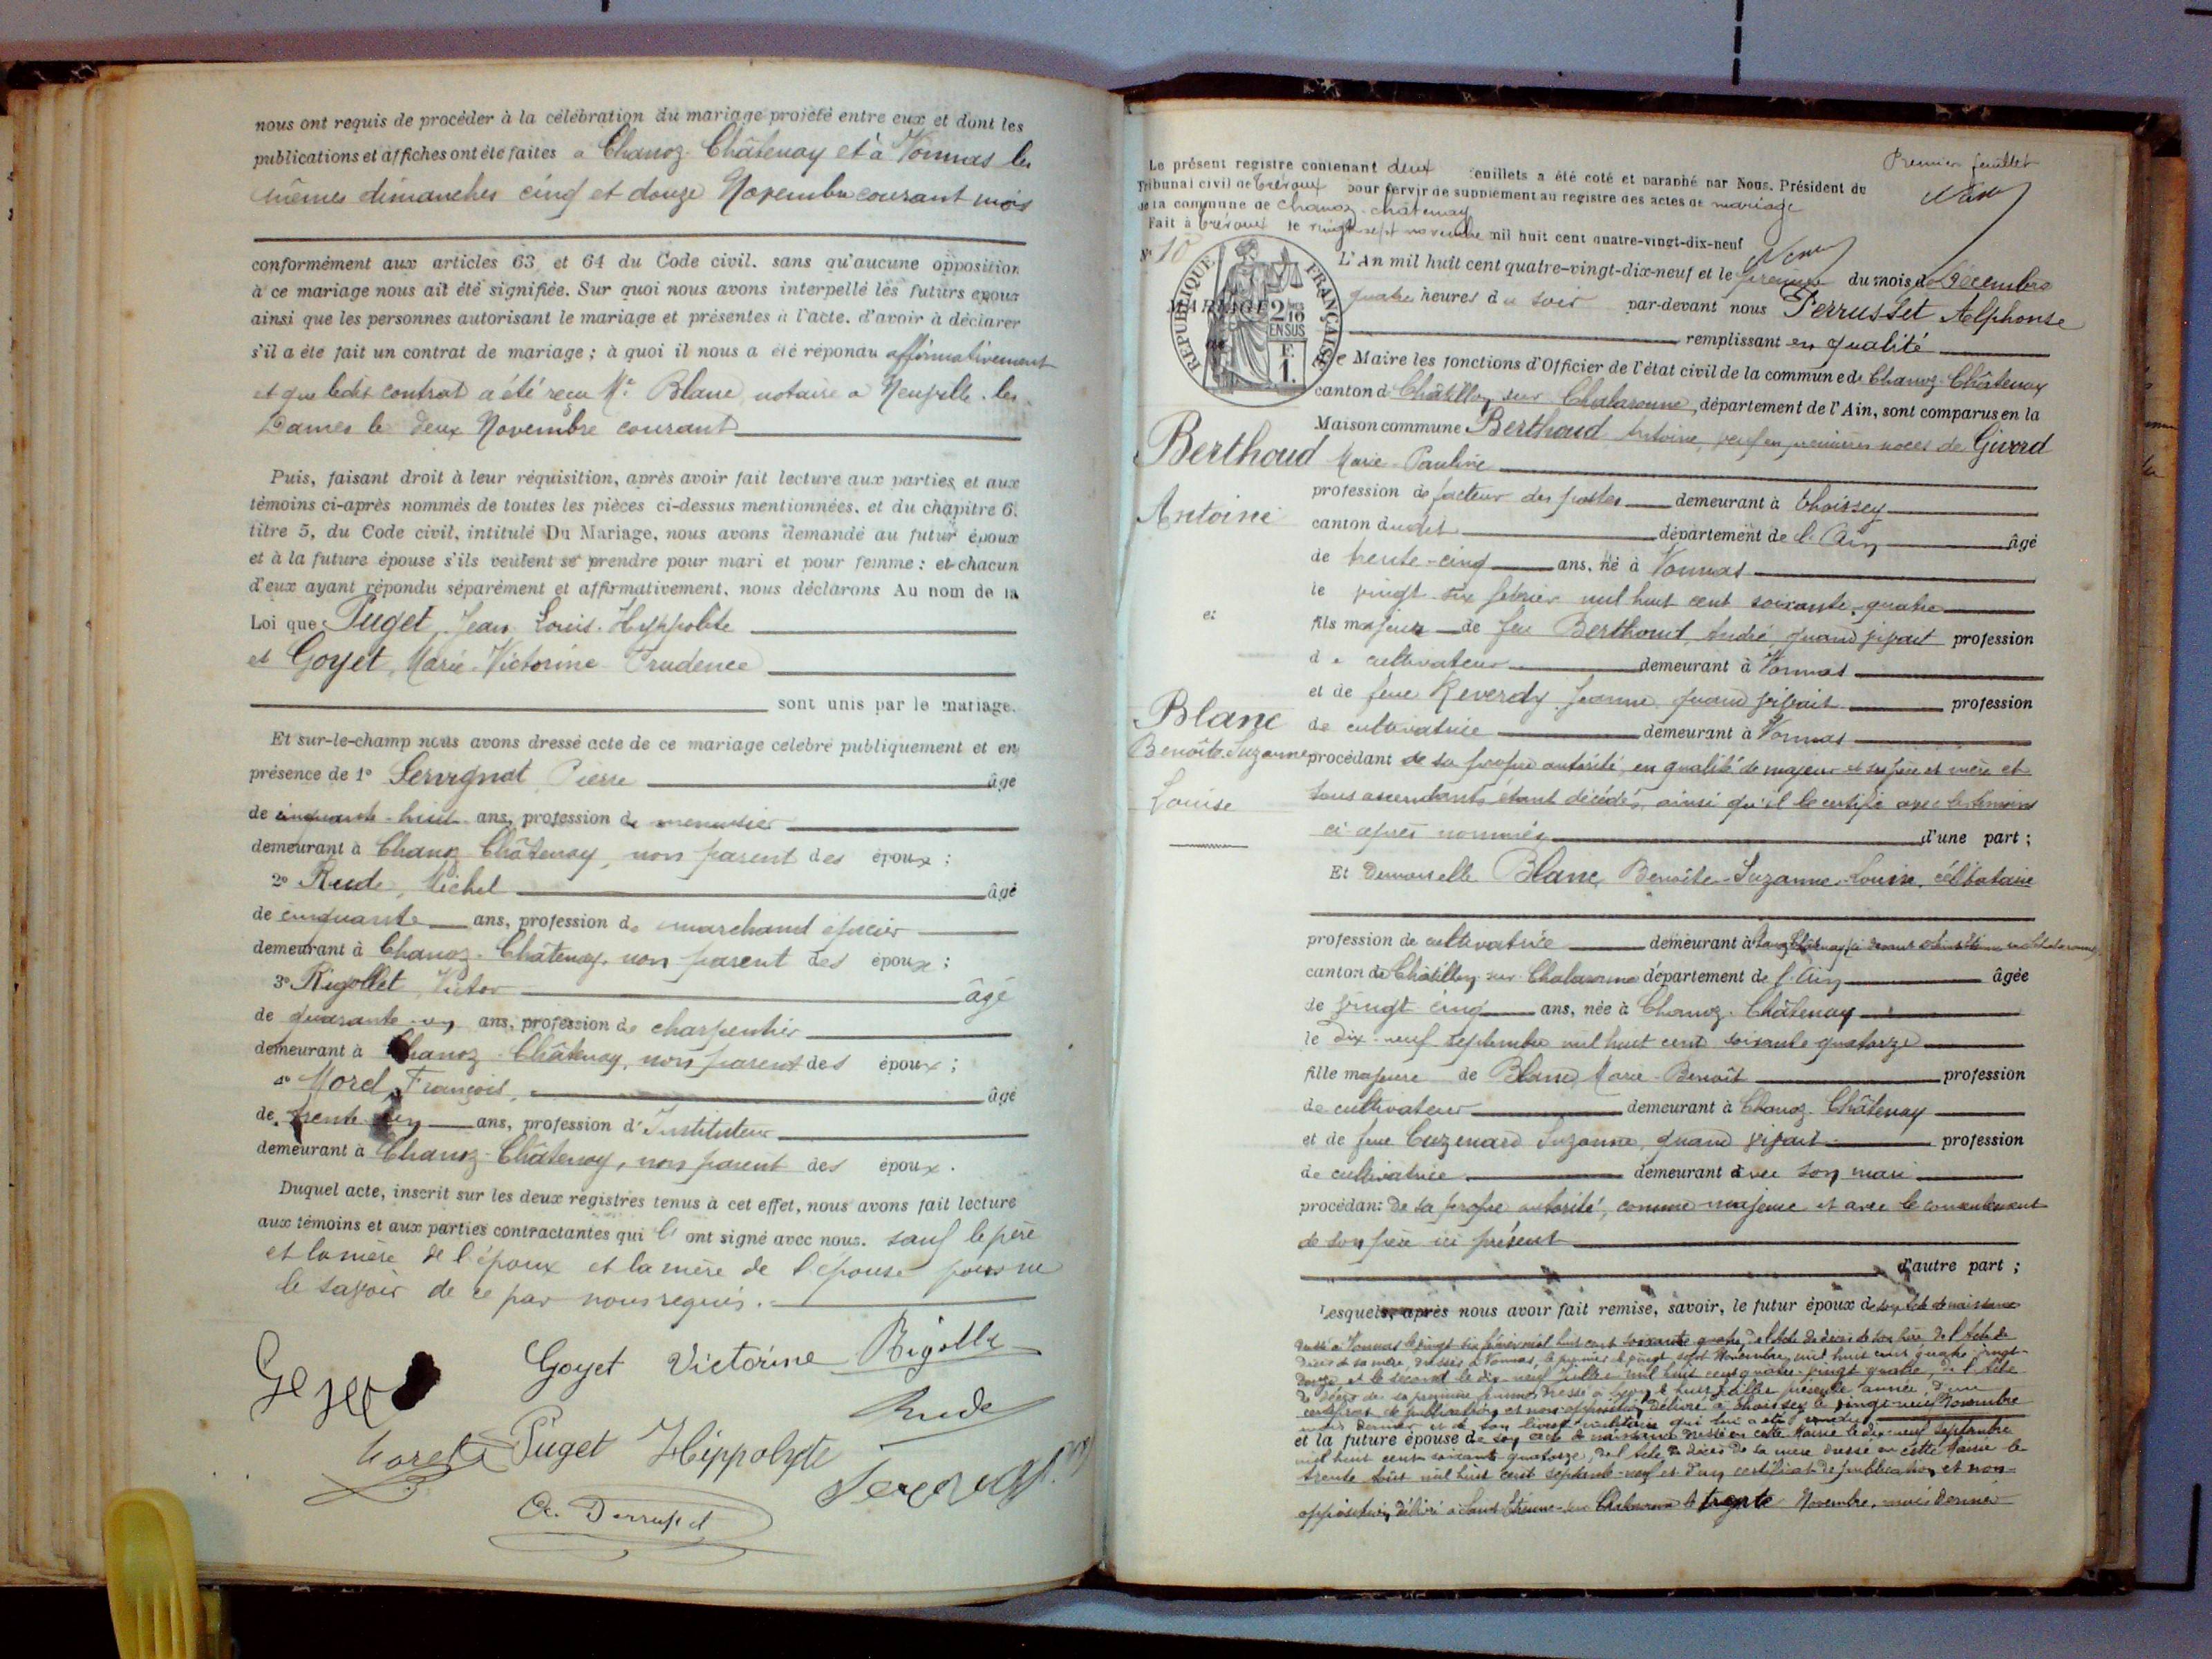 nous ont requis de procéder à la célébration du mariage projeté entre eux et dont les
publications et affiches ont été faites à Chanoz-Châtenay et à Vonnas les
mêmes dimanches cinq et douze Novembre courant mois
conformément aux articles 63 et 64 du Code civil, sans qu'aucune opposition
à ce mariage nous ait été signifiée. Sur quoi nous avons interpellé les futurs époux
ainsi que les personnes autorisant le mariage et présentes à l'acte, d'avoir à déclarer
s'il a été fait un contrat de mariage ; à quoi il nous a été répondu affirmativement
et que ledit contrat a été reçu Me Blanc, notaire à Neuville-les-
Dames le deux Novembre courant
Puis, faisant droit à leur réquisition, après avoir fait lecture aux parties et aux
témoins ci-après nommés de toutes les pièces ci-dessus mentionnées, et du chapitre 6,
titre 5, du Code civil, intitulé Du Mariage, nous avons demandé au futur époux
et à la future épouse s'ils veulent se prendre pour mari et pour femme ; et chacun
d'eux ayant répondu séparément et affirmativement, nous déclarons Au nom de la
Loi que Puget, Jean Louis Hyppolite
et Goyet, Marie-Victorine Prudence
sont unis par le mariage.
Et sur-le-champ nous avons dressé acte de ce mariage célébré publiquement et en
présence de 1° Servignat Pierre âgé
de cinquante-huit ans, profession de menuisier
demeurant à Chanoz Châtenay, non parent des époux ;
2° Rude, Michel âgé
de cinquante ans, profession de marchand épicier
demeurant à Chanoz-Châtenay, non parent des époux ;
3° Rigollet, Victor âgé
de quarante-un ans, profession de charpentier
demeurant à Chanoz-Châtenay, non parent des époux ;
4° Morel, François, âgé
de trente-un ans, profession d'Instituteur
demeurant à Chanoz-Châtenay, non parent des époux.
Duquel acte, inscrit sur les deux registres tenus à cet effet, nous avons fait lecture
aux témoins et aux parties contractantes qui l'ont signé avec nous. sauf le père
et la mère de l'époux et la mère de l'épouse pour ne
le savoir de ce par nous requis.
Goyet Victorine Rigollet
Rude
Morel Puget Hippolyte
A. Perrusset
Premier feuillet
Le présent registre contenant deux feuillets a été coté et paraphé par Nous, Président du
Tribunal civil de Trévoux pour servir de supplément au registre des actes de mariage
de la commune de Chanoz-Châtenay
Fait à Trévoux le vingt-sept novembre mil huit cent quatre-vingt-dix-neuf
N° 10
RÉPUBLIQUE FRANÇAISE
2/10 EN SUS
1 F.
MARIAGE
de
L'An mil huit cent quatre-vingt-dix-neuf et le premier du mois de Décembre
quatre heures du soir par-devant nous Perrusset Alphonse
remplissant en qualité
de Maire les fonctions d'Officier de l'état civil de la commune de Chanoz-Châtenay
canton de Châtillon sur Chalaronne, département de l'Ain, sont comparus en la
Maison commune Berthoud Antoine, veuf en premières noces de Givord
Berthoud
Marie-Pauline
profession de facteur des postes demeurant à Thoissey
Antoine
canton dudit département de l'Ain âgé
de trente-cinq ans, né à Vonnas
le vingt-six février mil huit cent soixante-quatre
et
fils majeur de feu Berthoud, André, quand vivait profession
de cultivateur demeurant à Vonnas
et de feue Reverdy Jeanne, quand vivait profession
Blanc
de cultivatrice demeurant à Vonnas
Benoîte-Suzanne
procédant de sa propre autorité, en qualité de majeur et ses père et mère et
Louise
tous ascendants étant décédés, ainsi qu'il le certifie avec les témoins
ci-après nommés d'une part ;
Et Demoiselle Blanc, Benoîte-Suzanne-Louise, célibataire
profession de cultivatrice demeurant à Chanoz Châtenay
canton de Châtillon-sur-Chalaronne département de l'Ain âgée
de vingt-cinq ans, née à Chanoz-Châtenay
le dix-neuf septembre mil huit cent soixante quatorze
fille majeure de Blanc, Marie-Benoît profession
de cultivateur demeurant à Chanoz-Châtenay
et de feue Cuzenard Suzanne, quand vivait profession
de cultivatrice demeurant avec son mari
procédant de sa propre autorité, comme majeure et avec le consentement
de son père ici présent
d'autre part ;
Lesquels, après nous avoir fait remise, savoir, le futur époux de son acte de naissance
dressé à Vonnas le vingt six février mil huit cent soixante quatre, de l'Acte de décès de son père de l'Acte de
décès de sa mère, dressés à Vonnas, le premier le vingt-sept Novembre mil huit cent quatre-vingt-
douze et le second le dix-neuf juillet mil huit cent quatre-vingt quatre, de l'Acte
de décès de sa première femme dressé à Lyon le huit juillet présente année, d'un
certificat de publication et non-opposition délivré à Thoissey le vingt-neuf Novembre
mois dernier et de son livret militaire qui lui a été rendu
et la future épouse de son acte de naissance dressé en cette Mairie le dix-neuf Septembre
mil huit cent soixante quatorze, de l'Acte de décès de sa mère dressé en cette Mairie le
trente août mil huit cent septante-neuf et d'un certificat de publication et non-
opposition, délivré à Saint Etienne-sur-Chalaronne le trente Novembre, mois dernier